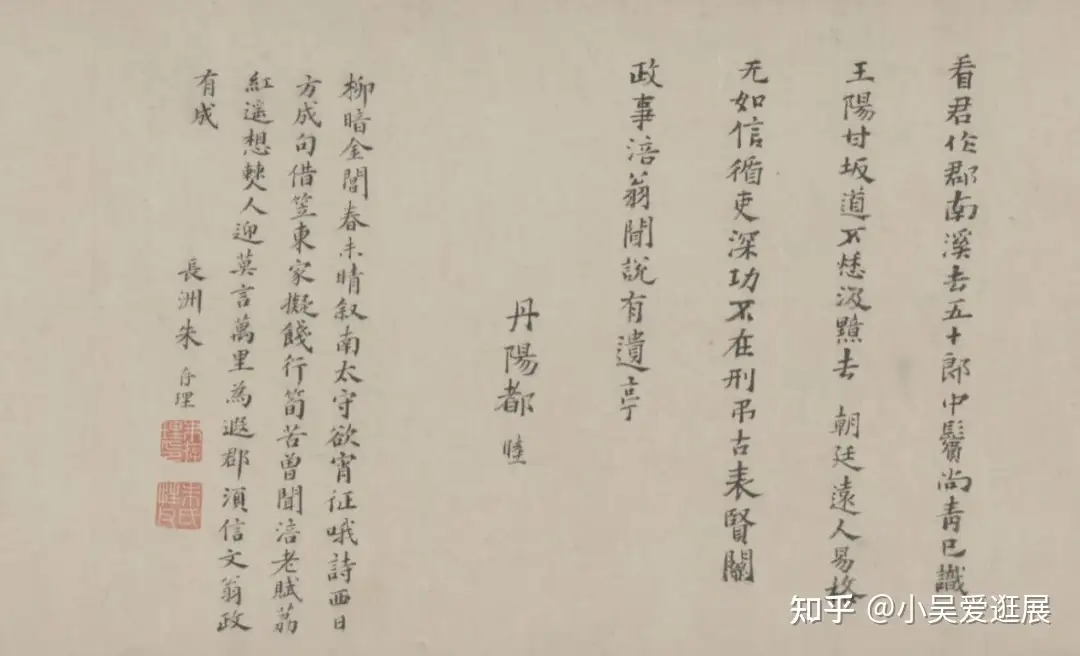 看君作郡南溪去五十郎中鬢尚青已識
王陽甘坂道不愁汲黯去 朝廷遠人易格
无如信循吏深功不在刑弔古表賢關
政事涪翁聞說有遺亭
丹陽都 睦
柳暗金閶春未晴叙南太守欲宵征哦詩西日
方成句借笠東家擬餞行筍苦曾聞涪老賦荔
紅遥想僰人迎莫言萬里為遐郡須信文翁政
有成
長洲朱 存理
知乎 @小吴爱逛展